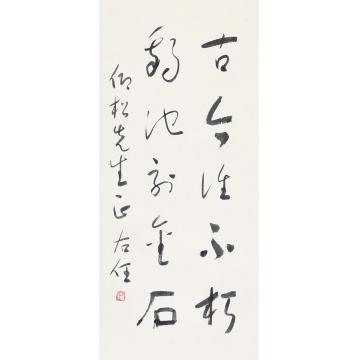 古今誰不朽
池刻金石
仰松先生正 右任